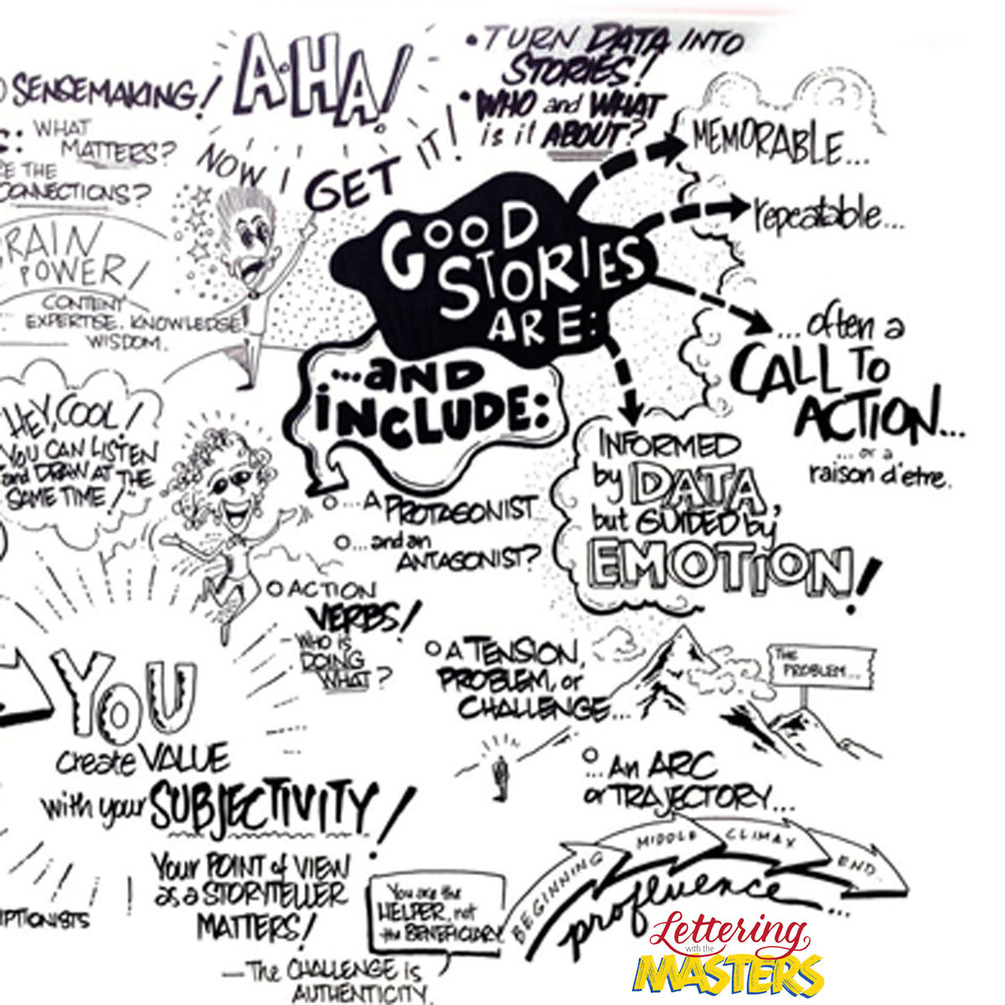 SENSEMAKING!
WHAT
MATTERS?
THE
CONNECTIONS?
A·HA!
NOW I GET IT!
• TURN DATA INTO
STORIES!
• WHO and WHAT
is it ABOUT?
GOOD
STORIES
ARE:
MEMORABLE...
repeatable...
...often a
CALL TO
ACTION...
...or a
raison d'etre.
INFORMED
by DATA,
but GUIDED by
EMOTION!
POWER!
CONTENT
EXPERTISE. KNOWLEDGE
WISDOM.
HEY, COOL!
YOU CAN LISTEN
and DRAW AT THE
SAME TIME!"
...AND
INCLUDE:
...A PROTAGONIST
...and an
ANTAGONIST?
ACTION
VERBS!
-WHO IS
DOING
WHAT?
A TENSION,
PROBLEM, or
CHALLENGE...
THE
PROBLEM...
...AN ARC
or TRAJECTORY...
BEGINNING MIDDLE CLIMAX END
profluence...
YOU
create VALUE
with your SUBJECTIVITY!
YOUR POINT of VIEW
as a STORYTELLER
MATTERS!
You are the
HELPER, not
the BENEFICIARY.
—The CHALLENGE is
AUTHENTICITY.
Lettering
with the
MASTERS